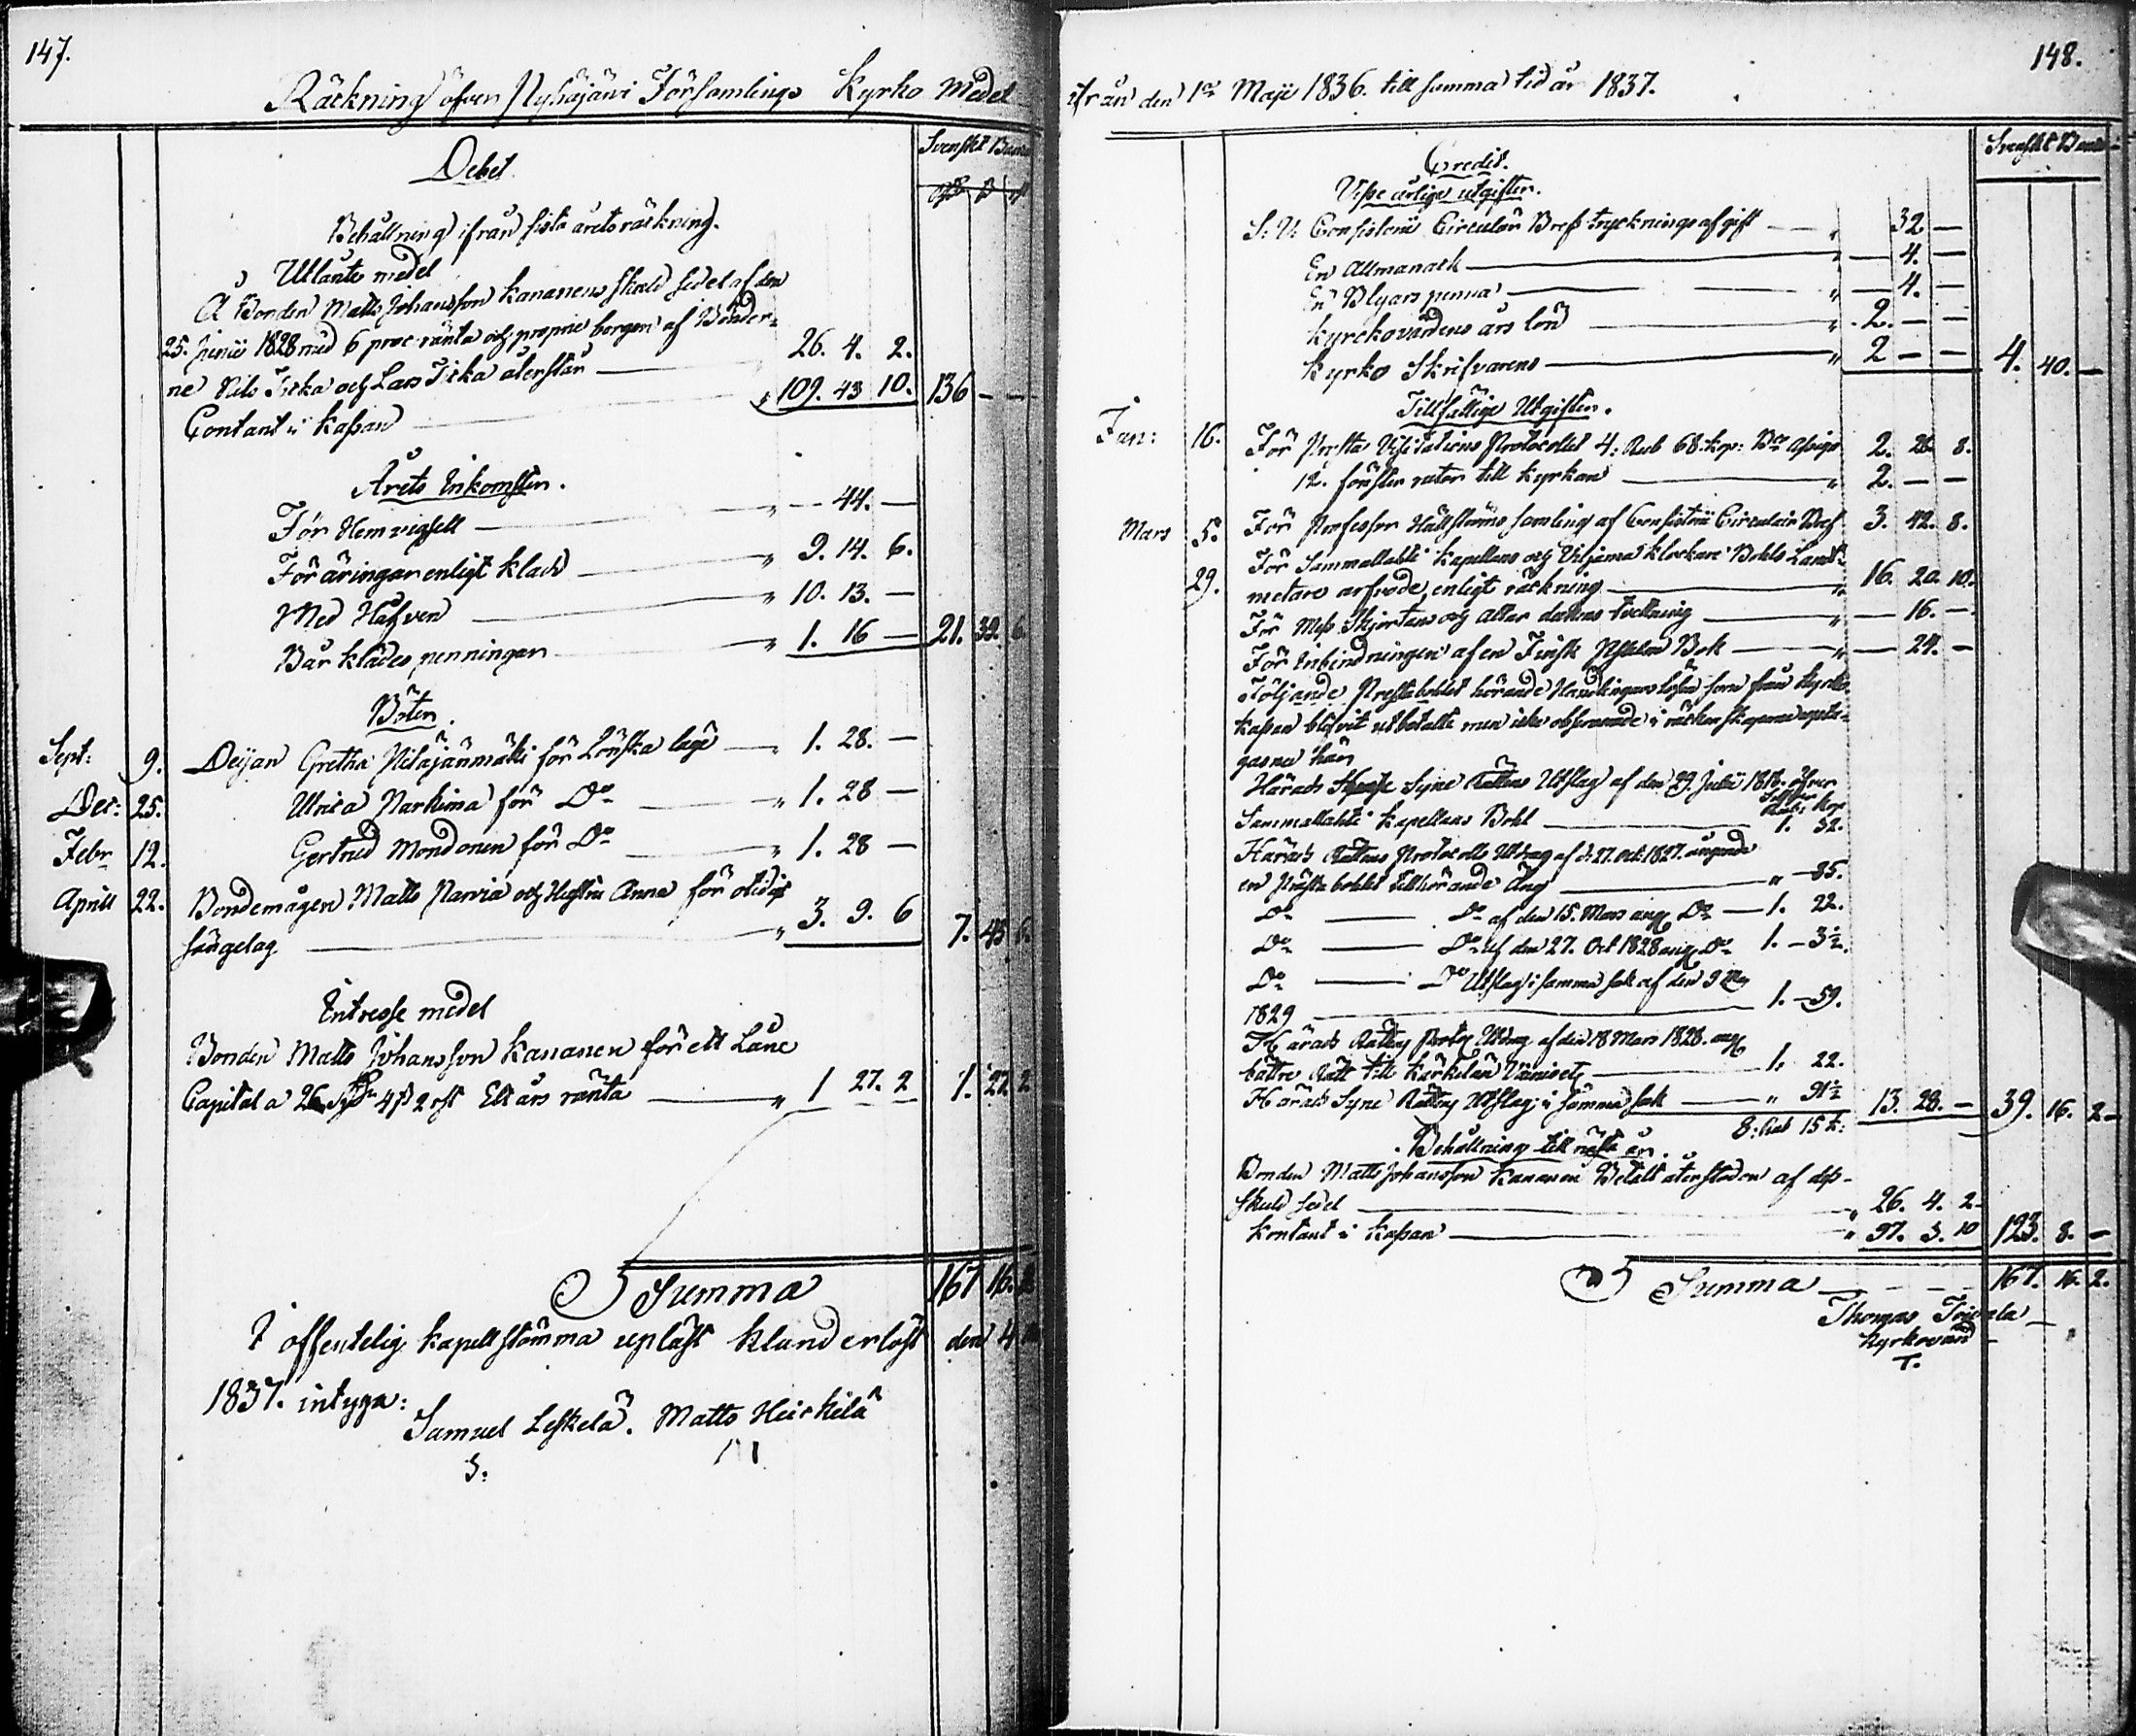 147.
Räckning öfver Pyhäjärvi Församlings Kyrko Medel
Debet.
Svenskt Banco
Rd ß rst
Behållning ifrån sista årets räckning.
Utlånte medel
Å Bonden Matts Johansson Kananens skuld sedel af den
25. Junii 1828 med 6 proc ränta och proprie borgen af Bönder-
ne Nils Ticka och Lars Ticka återstår — 26. 4. 2.
Contant i Kassan — " 109. 43 10. 136 — —
Årets Inkomster.
För Hemvigsell — " — 44. —
Föräringar enligt kladd — " 9. 14. 6.
Med Håfven — " 10. 13. —
Bår klädes penningar — " 1. 16 — 21. 39. 6.
Böter.
Sept: 9. Deijan Gretha Pitäjänmäki för Löнska läge — " 1. 28. —
Dec: 25. Ulrica Parkima för Do — " 1. 28 —
Febr 12. Gertrud Mondonen för Do — " 1. 28 —
Aprill 22. Bondemågen Matts Narvia och Hustru Anna för otidigt
sängelag — " 3. 9. 6 7. 45 6.
Intresse medel
Bonden Matts Johansson Kananen för ett Låne
Capital a 26 Rd 4 ß 2 rst Ett års ränta — " 1 27. 2 1. 27 2
Summa 167 16. 2
I offentelig kapellstämma upläst klanderlöst den 4
1837. intyga:
Samuel Leskelä. Matts Heickilä
S.
148.
ifrån den 1a Maji 1836. till samma tid år 1837.
Credit.
Svenskt Banco
Visse årlige utgifter.
S: V: Consistorii Circulär Bref trycknings afgift — " 32 —
En Allmanack — " — 4. —
En Blyars penna — " — 4. —
Kyrckovärdens års lön — " 2. — —
Kyrko Skrifvarens — " 2 — — 4. 40. —
Tillfällige Utgifter.
Jan: 16. För Prosta Visitations Protocollet 4: Rub 68. kop: Bco Assign 2. 28. 8.
12. fönster rutor till Kyrkan — " 2. — —
Mars 5. För Professor Hällströms samling af Consistorii Circulair Bref 3. 42. 8.
29. För Sammallahti Kapellans och Viljama klockare Bohls Landt-
metare arfvode, enligt räckning — " 16. 20. 10.
För Mess Skjortans och Altar dukens tvettning — " — 16. —
För Inbindningen af en Finsk Psalm Bok — " — 24. —
Följande Prestabohlet hörande Handlingars lösen som från Kyrko
kassan blifvit utbetalte men icke observerade i räckenskaperne upta-
gas nu här
Härads Syne Rättens Utslag af den 29. Julii 1818. öfver
Silfver
Rub: kop
Sammallahti Kapellans Bohl — 1. 32.
Härads Rättens Protocolls Utdrag af d: 27. Oct: 1827. angående
en Prästabohlet tillhörande Äng — " — 85.
Do — Do af den 15. Mars ang Do — 1. 22.
Do — Do af den 27. Oct 1828 ang Do 1. — 3½.
Do — Do Utslag i samma sak af den 9
1829 — 1. — 59.
Härads Rättens Prot Utdrag af den 18 Mars 1828. ang
bättre Rätt till Kärkelän Vainiot — 1. 22.
Härads Syne Rättens Utslag i samma sak — " 91½ 13. 28. — 39. 16. 2—
8: Rub 15 k:
Behållning till nästa år.
Bonden Matts Johansson Kananen Betalt återstoden af dess
skuld sedel — " 26. 4. 2—
Kontant i Kassan — " 97. 3. 10 123. 8. —
Summa — 167. 16. 2.
Thomas
Kyrkovärd
T.